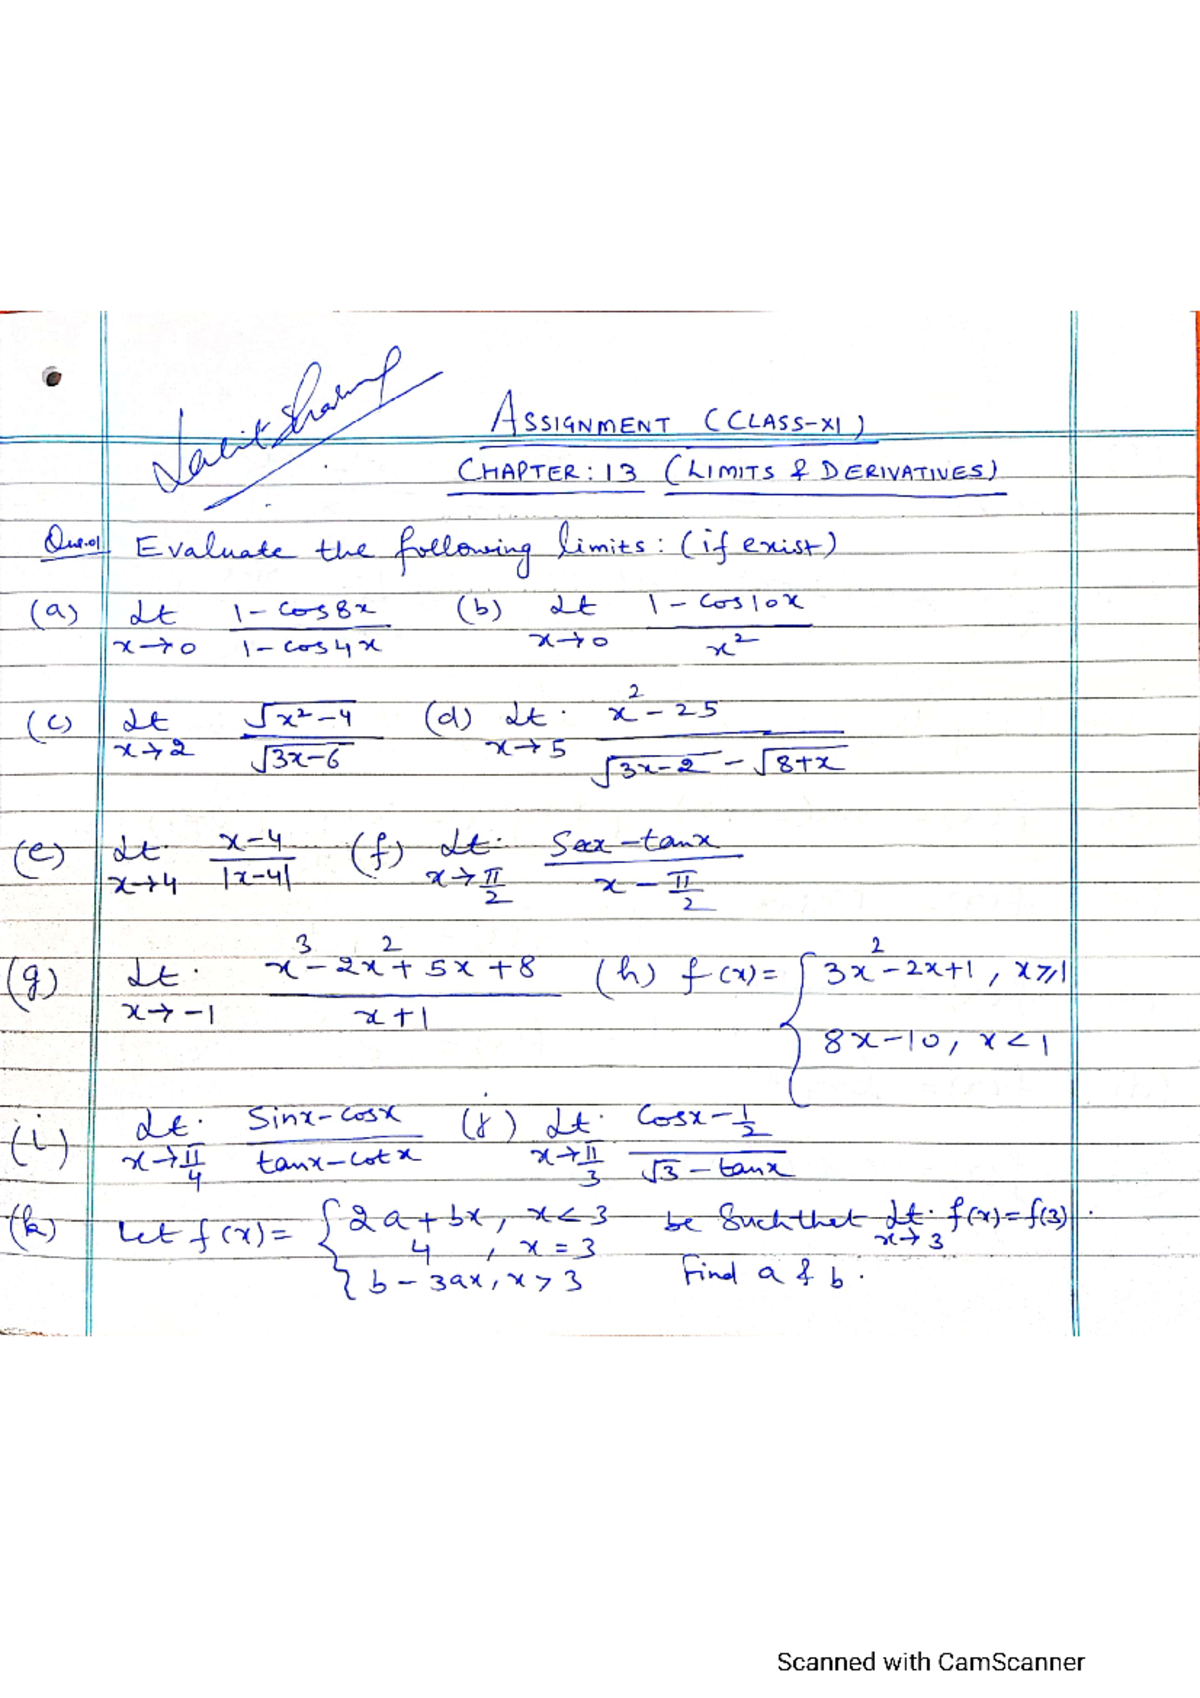 Lalit Sharma
ASSIGNMENT (CLASS-XI)
CHAPTER: 13 (LIMITS & DERIVATIVES)
Que.01 Evaluate the following limits: (if exist)
(a) Lt x→0 (1-cos8x)/(1-cos4x) (b) Lt x→0 (1-cos10x)/x²
(c) Lt x→2 √(x²-4)/√(3x-6) (d) Lt. x→5 (x²-25)/(√(3x-2) - √(8+x))
(e) Lt. x→4 (x-4)/|x-4| (f) Lt. x→π/2 (Secx-tanx)/(x-π/2)
(g) Lt. x→-1 (x³-2x²+5x+8)/(x+1) (h) f(x)= { 3x²-2x+1, x≥1
8x-10, x<1
(i) Lt. x→π/4 (Sinx-Cosx)/(tanx-cotx) (j) Lt. x→π/3 (Cosx-1/2)/(√3-tanx)
(k) Let f(x)= { 2a+bx, x<3 be Such that Lt. x→3 f(x)=f(3).
4, x=3
b-3ax, x>3 Find a & b.
Scanned with CamScanner